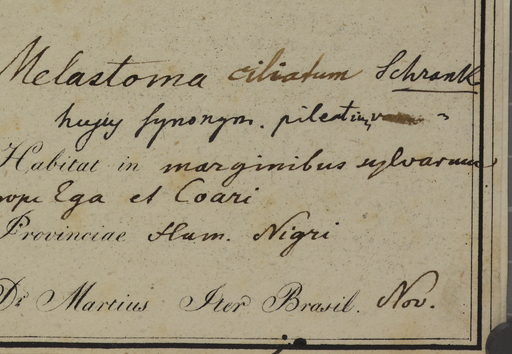 Melastoma ciliatum Schrank
hujus synonym.
Habitat in marginibus sylvarum
prope Ega et Coari
Provinciae flum. Nigri
Dr Martius Iter Brasil. Nov.